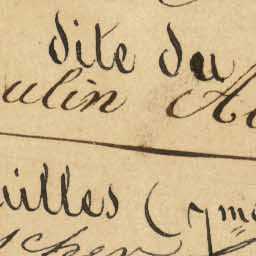 dite du
oulin A
uilles (7me